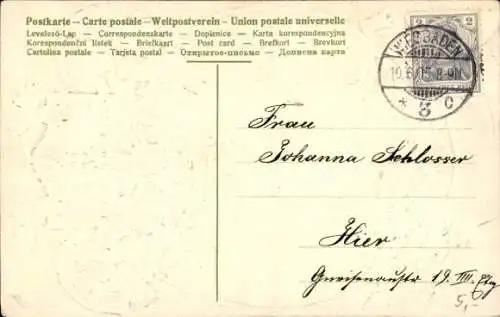 Postkarte – Carte postale – Weltpostverein – Union postale universelle
Levelező-Lap — Correspondenzkarte — Dopisnice — Karta korespondencyjna
Korespondenční lístek — Briefkaart — Post card — Brefkort — Brevkort
Cartolina postale — Tarjeta postal — Открытое-письмо — Дописна карта
2 2
WIESBADEN
19.6.05. 8-9N.
* 3 c
Frau
Johanna Schlosser
Hier
Gneisenaustr 19. IIII. Etg
5,-